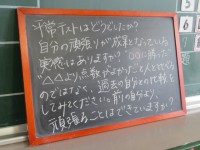 平常テストはどうでしたか？
自分の頑張りが成果となっている
実感はありますか？ ○○に勝った
"△△より点数がよかった"と比べる
のではなく、過去の自分との比較を
してみてください。前の自分より、
頑張ることはできていますか？